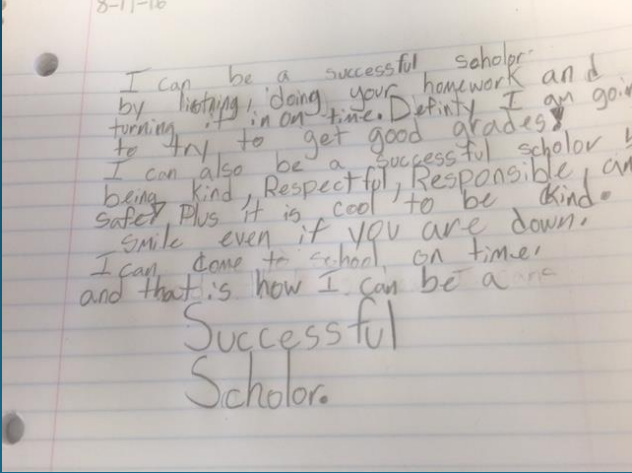 8-17-16
I can be a successful scholor
by listning, doing your homework and
turning it in on time. Definty I am goin
to try to get good grades!
I can also be a successful scholor
being kind, Respectful, Responsible, an
safe! Plus it is cool to be kind.
Smile even if you are down.
I can come to school on time.
and that is how I can be a
Successful
Scholor.